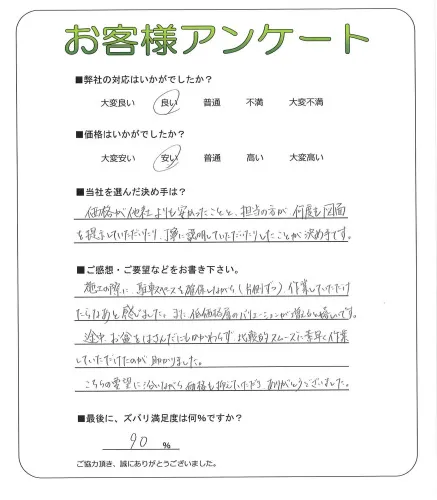 お客様アンケート
■弊社の対応はいかがでしたか？
大変良い 良い 普通 不満 大変不満
■価格はいかがでしたか？
大変安い 安い 普通 高い 大変高い
■当社を選んだ決め手は？
価格が他社よりも安かったことと、担当の方が、何度も図面
を提示していただいたり、丁寧に説明していただいたりしたことが決め手です。
■ご感想・ご要望などをお書き下さい。
施工の際に駐車スペースを確保しながら(片側ずつ)作業していただけ
たらなあと感じました。また低価格層のバリエーションが増えると嬉しいです。
途中お盆をはさんだにもかかわらず、比較的スムーズに素早く作業
していただけたのが助かりました。
こちらの要望に沿いながら価格も抑えていただき、ありがとうございました。
■最後に、ズバリ満足度は何%ですか？
90 %
ご協力頂き、誠にありがとうございました。